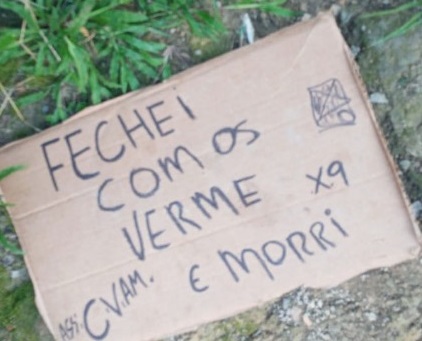 FECHEI
COM OS
VERME X9
E MORRI
ASS: C.V.AM.